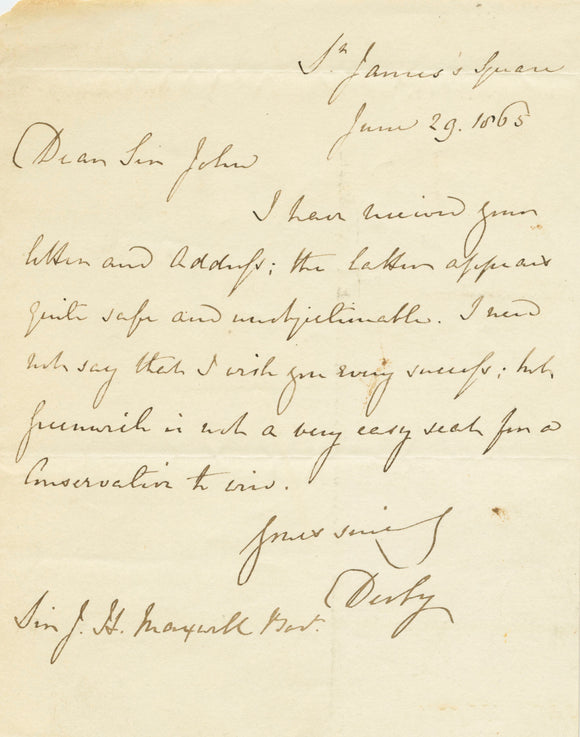 St James's Square
June 29. 1865
Dear Sir John
I have received your
letter and Address; the latter appears
quite safe and unobjectionable. I need
not say that I wish you every success; but
Greenwich is not a very easy seat for a
Conservative to win.
Yours sincely
Derby
Sir J. H. Maxwell Bart.